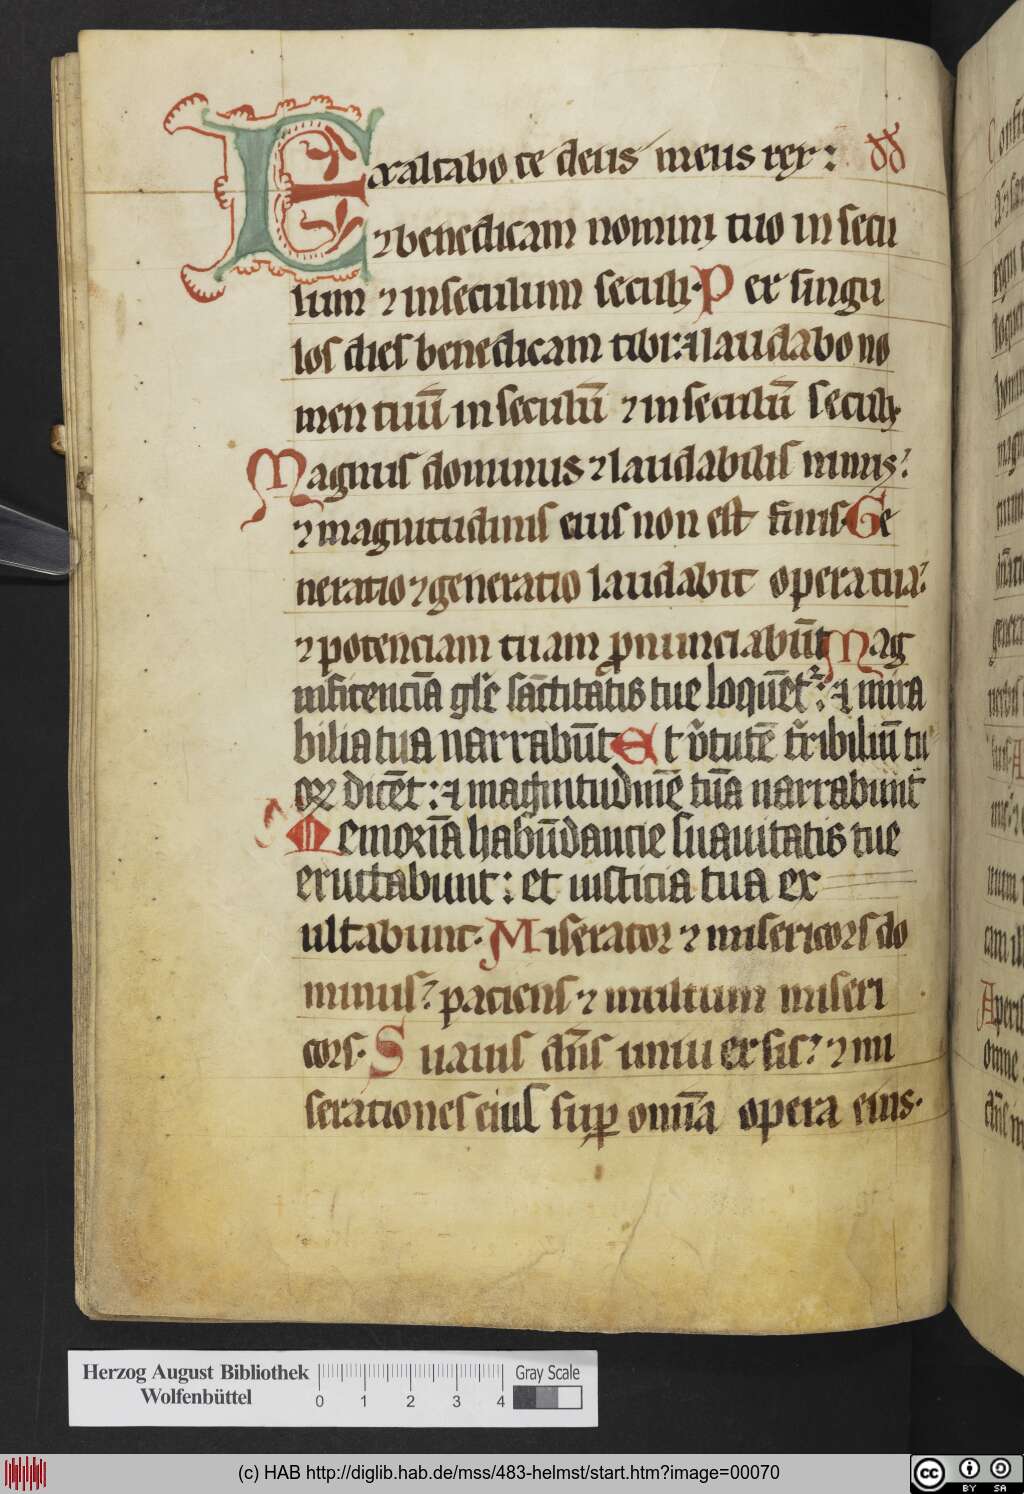 Exaltabo te deus meus rex: dd
⁊ benedicam nomini tuo in secu
lum ⁊ in seculum seculi. Per singu
los dies benedicam tibi: ⁊ laudabo no
men tuū in seculū ⁊ in seculū seculi.
Magnus dominus ⁊ laudabilis nimis:
⁊ magnitudinis eius non est finis. Ge
neratio ⁊ generatio laudabit opera tua:
⁊ potenciam tuam ꝓnunciabūt Mag
nificenciā gl̄e sāctitatis tue loquēt᷑: ⁊ mira
bilia tua narrabūt Et v̓tutē t̓ribiliū tu
oꝝ dicēt: ⁊ magnitudinē tuā narrabunt
Memoriā habūdancie suauitatis tue
eructabunt: et iusticia tua ex
ultabunt. Miserator ⁊ misericors do
minus: paciens ⁊ multum miseri
cors. Suauis dn̄s uniuersis: ⁊ mi
serationes eius suꝑ omīa opera eius.
Herzog August Bibliothek
Wolfenbüttel
0 1 2 3 4
Gray Scale
(c) HAB http://diglib.hab.de/mss/483-helmst/start.htm?image=00070
cc BY SA